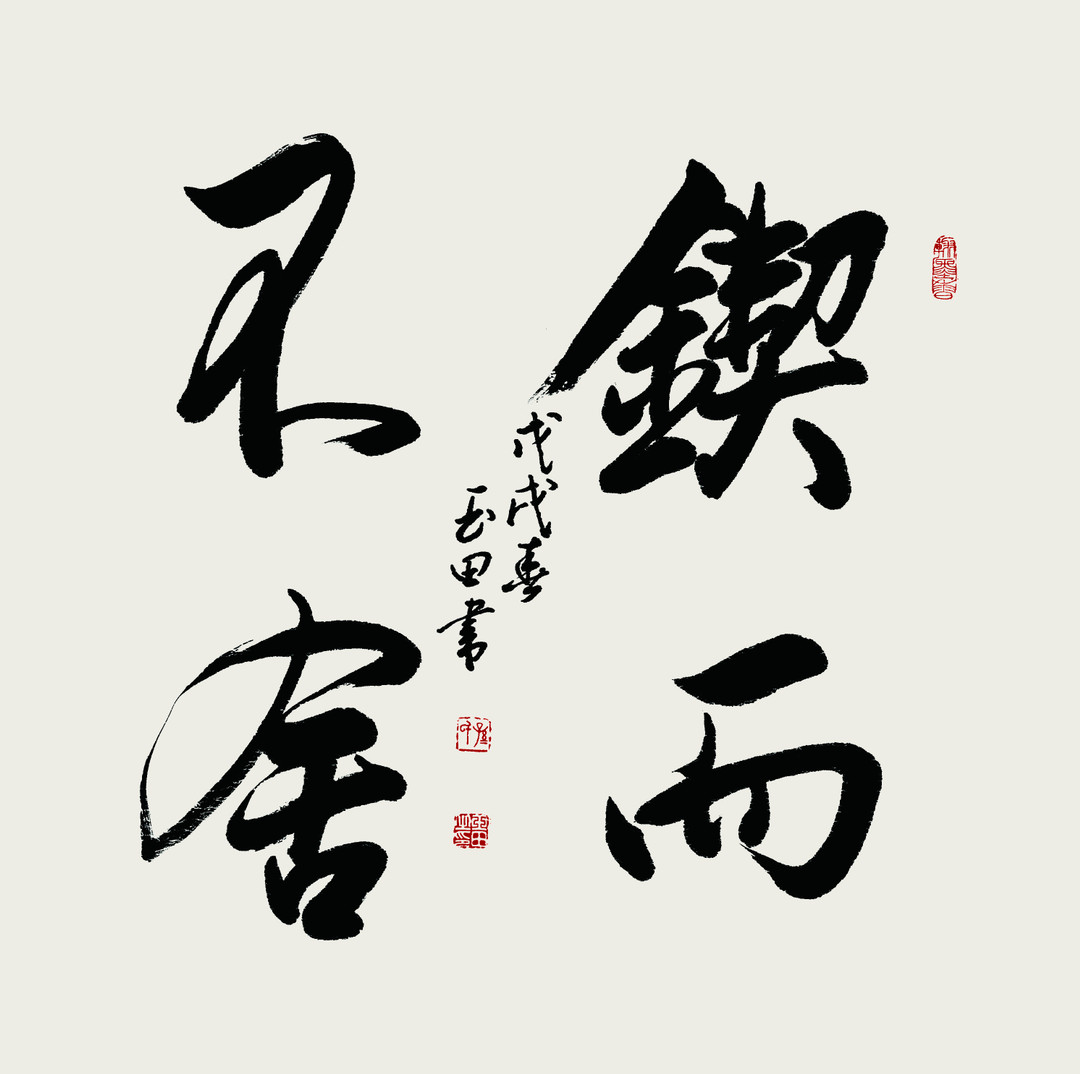 锲而
不舍
戊戌春
玉田书